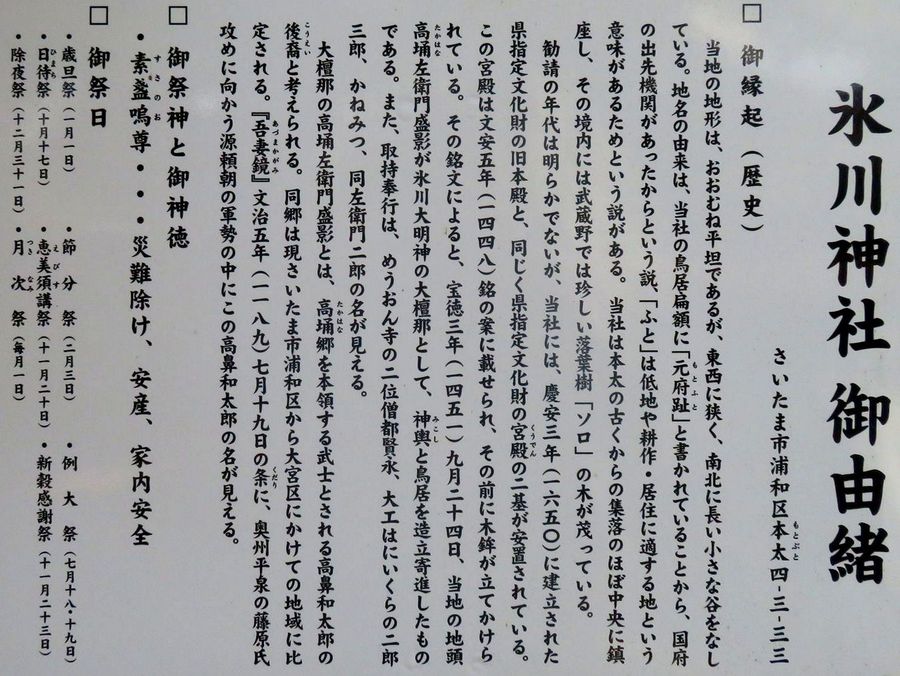 氷川神社 御由緒
さいたま市浦和区本太四-三-三三
もとぶと
□ 御縁起(歴史)
当地の地形は、おおむね平坦であるが、東西に狭く、南北に長い小さな谷をなし
ている。地名の由来は、当社の鳥居扁額に「元府趾」と書かれていることから、国府
もとふと
の出先機関があったからという説、「ふと」は低地や耕作・居住に適する地という
意味があるためという説がある。当社は本太の古くからの集落のほぼ中央に鎮
座し、その境内には武蔵野では珍しい落葉樹「ソロ」の木が茂っている。
勧請の年代は明らかでないが、当社には、慶安三年(一六五〇)に建立された
県指定文化財の旧本殿と、同じく県指定文化財の宮殿の二基が安置されている。
くうでん
この宮殿は文安五年(一四四八)銘の案に載せられ、その前に木鉾が立てかけら
れている。その銘文によると、宝徳三年(一四五一)九月二十四日、当地の地頭
高埇左衛門盛影が氷川大明神の大檀那として、神輿と鳥居を造立寄進したもの
たかはな
みこし
である。また、取持奉行は、めうおん寺の二位僧都賢永、大工はにいくらの二郎
三郎、かねみつ、同左衛門二郎の名が見える。
大檀那の高埇左衛門盛影とは、高埇郷を本領する武士とされる高鼻和太郎の
たかはな
後裔と考えられる。同郷は現さいたま市浦和区から大宮区にかけての地域に比
こうえい
定される。『吾妻鏡』文治五年(一一八九)七月十九日の条に、奥州平泉の藤原氏
あづまかがみ
くだり
攻めに向かう源頼朝の軍勢の中にこの高鼻和太郎の名が見える。
□ 御祭神と御神徳
・素盞嗚尊・・・災難除け、安産、家内安全
すさのお
□ 御祭日
・歳旦祭(一月一日) ・節分祭(二月三日) ・例大祭(七月十八・十九日)
・日待祭(十月十七日) ・恵美須講祭(十一月二十日) ・新穀感謝祭(十一月二十三日)
ひまち
えびす
・除夜祭(十二月三十一日) ・月次祭(毎月一日)
つきなみ